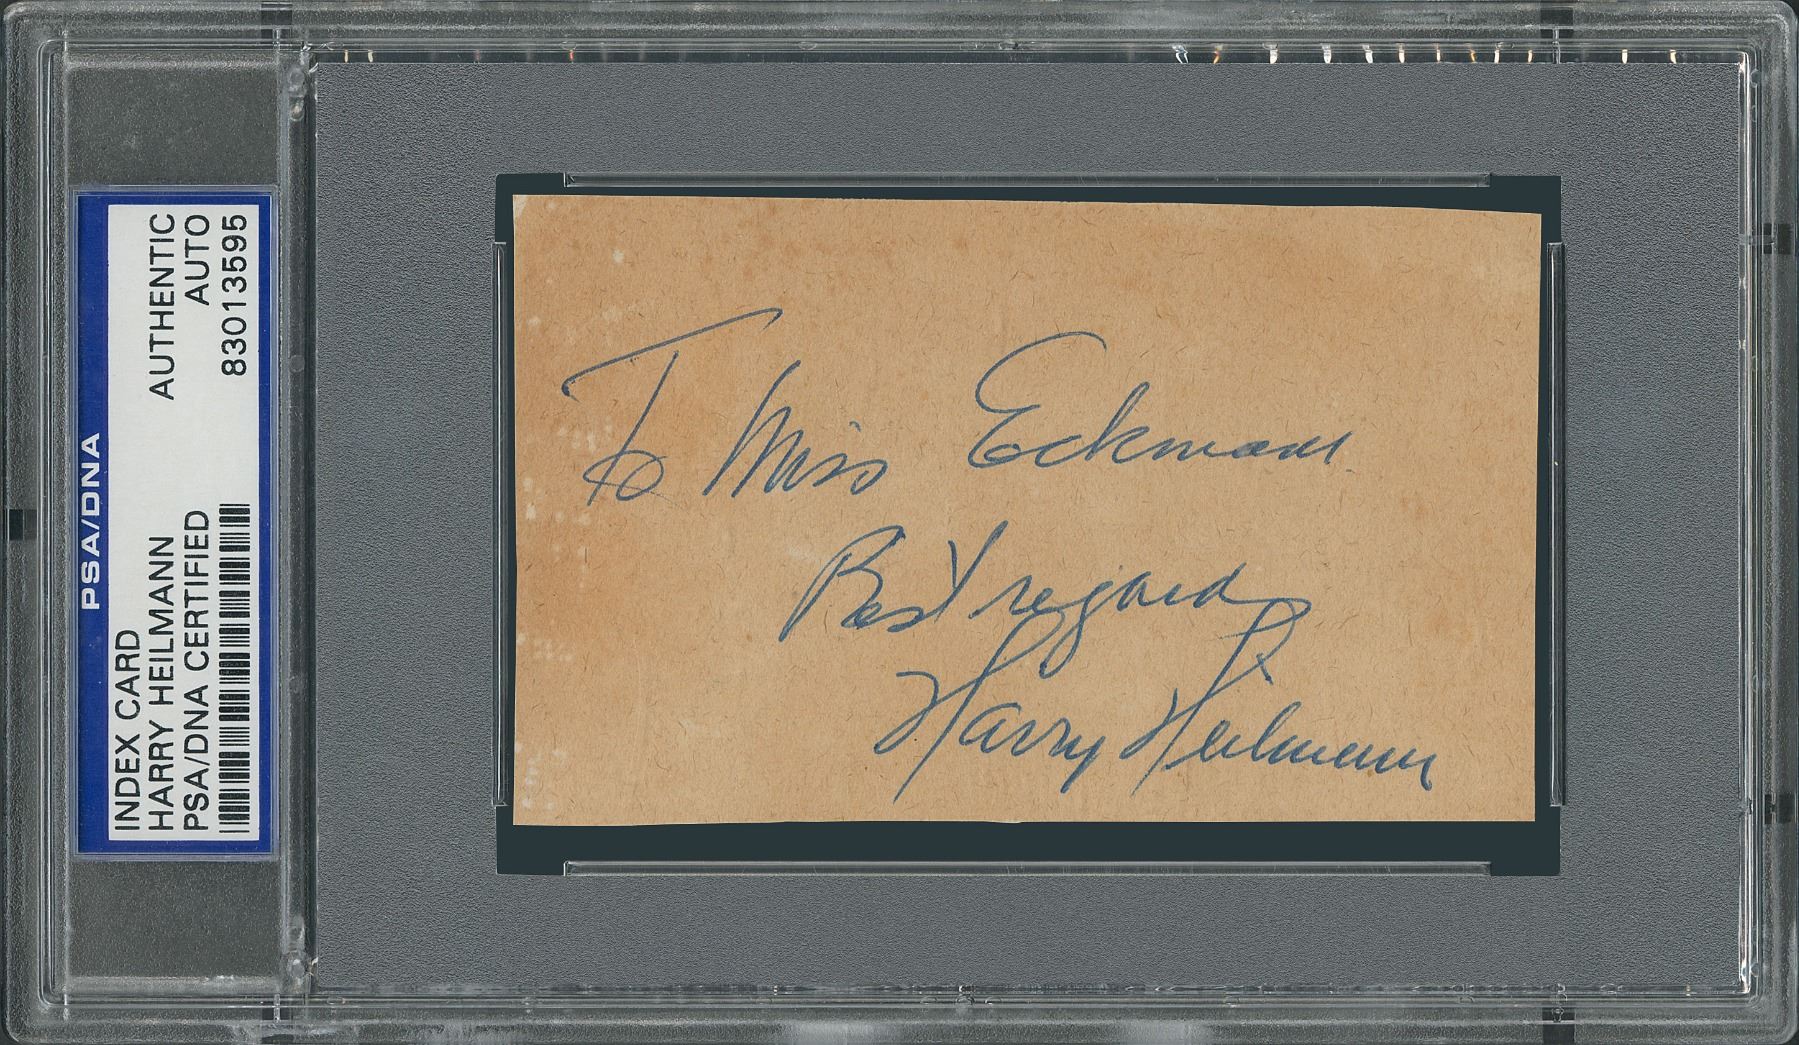 PSA/DNA
INDEX CARD AUTHENTIC
HARRY HEILMANN AUTO
PSA/DNA CERTIFIED 83013595
To Miss Eckman
Best regards
Harry Heilmann